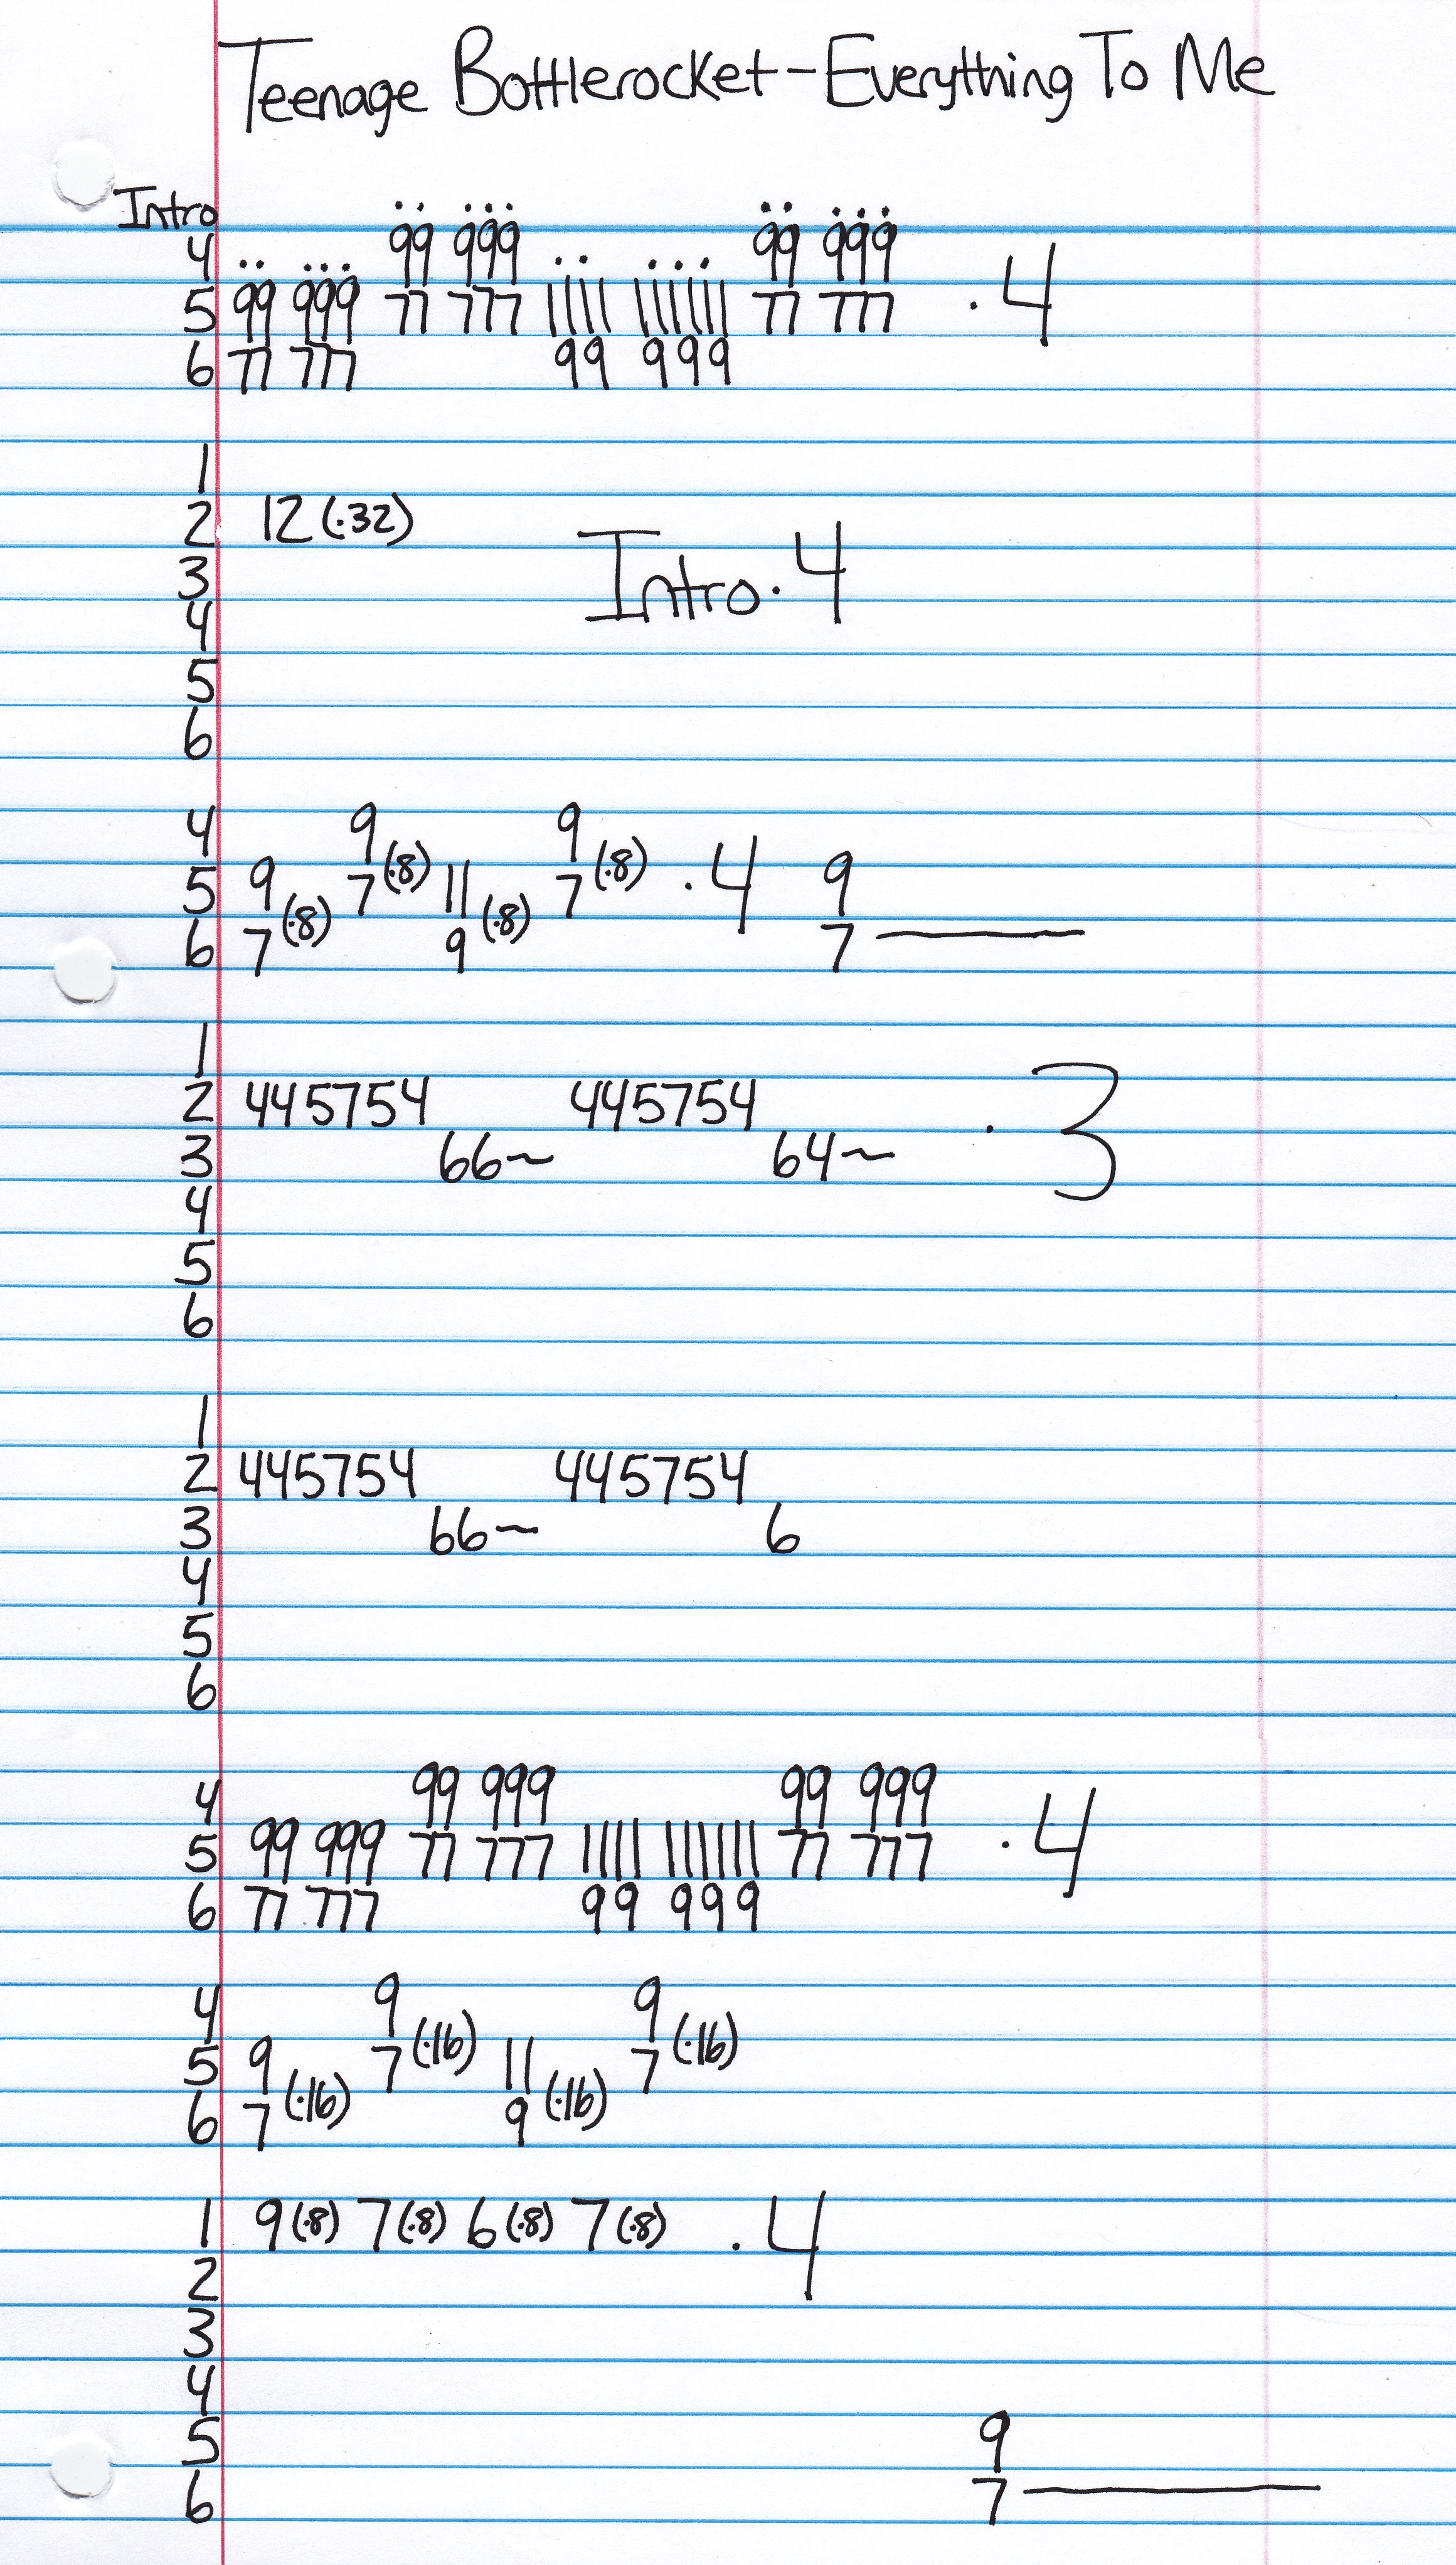 Teenage Bottlerocket - Everything To Me
Intro
4 .. ... 99 999 .. ... 99 999
5 99 999 77 777 1111 111111 77 777 · 4
6 77 777 99 999
1
2 12 (·32)
3 Intro · 4
4
5
6
4 9 9
5 9 7 (·8) 11 7 (·8) · 4 9
6 7 (·8) 9 (·8) 7 ———
1
2 445754 445754 · 3
3 66~ 64~
4
5
6
1
2 445754 445754
3 66~ 6
4
5
6
4 99 999 99 999
5 99 999 77 777 1111 111111 77 777 · 4
6 77 777 99 999
4 9 9
5 9 7 (·16) 11 7 (·16)
6 7 (·16) 9 (·16)
1 9 (·8) 7 (·8) 6 (·8) 7 (·8) · 4
2
3
4
5 9
6 7 ———